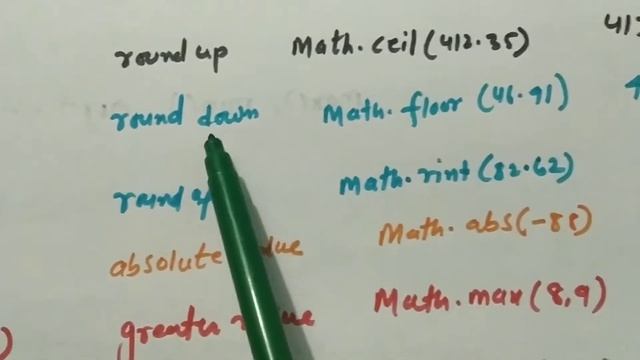 round up Math.ceil(412.85)
round down Math.floor (46.91)
Math.rint(82.62)
absolute Math.abs(-88)
greater Math.max(8,9)